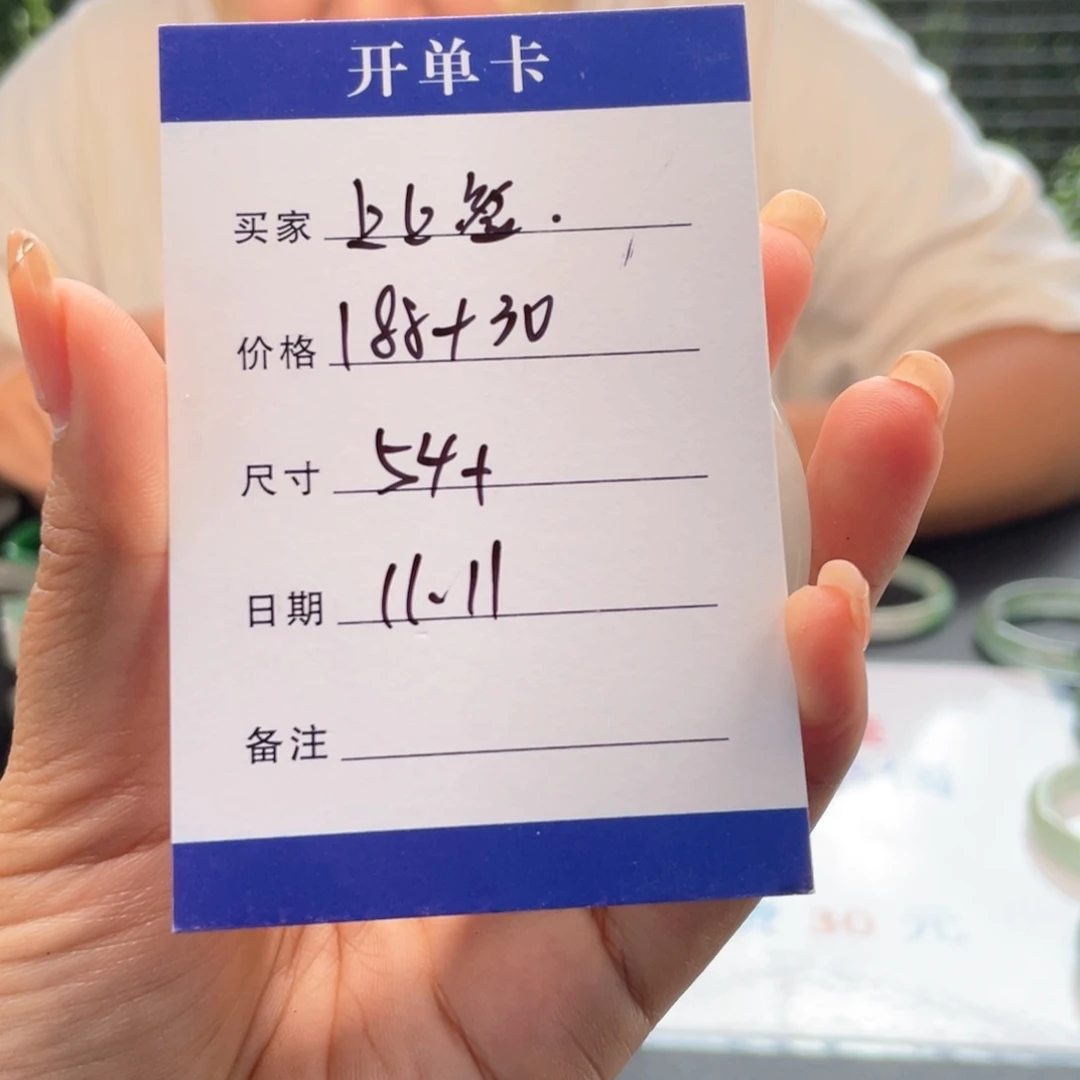 开单卡
买家
价格 188+30
尺寸 54+
日期 11.11
备注
30 元